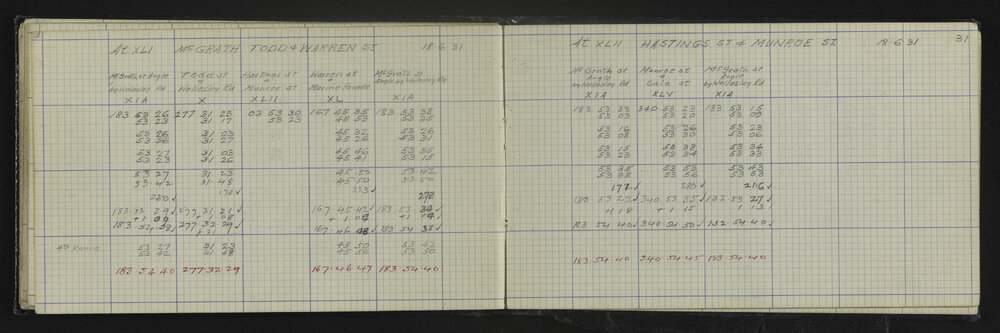 At XLI McGRATH TODD & WARREN ST 18·6·31
McGrath st Angle Todd st Hastings st Warren st McGrath st
by Wellesley Rd & & & Angle by Wellesley Rd
Wellesley Rd Munroe st Marine Parade
XIA X XLII XL XIA
183 53 26 277 31 28 03 53 30 167 45 35 183 53 28
53 23 31 17 53 23 45 53 53 25
53 26 31 03 45 32 53 26
53 36 31 27 45 26 53 31
31 03 45 46 53 35
53 23 31 26 45 41 53 15
53 27 31 23 45·50 53·42
53·42 31·48 45·50 53·50
183 53 29 277 31 21 167·45·42 183·53·34
183·54·38 277·32·29 167·46·48 183 54 38
4th Round 53 27 31 23 45·50 53 42
53 42 31 48 53 50
183·54·40 277·32·29 167·46·47 183·54·40
At XLII HASTINGS ST & MUNROE ST 18·6·31 31
McGrath st Munroe st McGrath st
Angle & Angle
by Wellesley Rd Sale st by Wellesley Rd
XIA XLV XIA
183 53 33 340 53 23 183 53 15
53 03 53 20 53 09
53 16 53 26 53 23
53 08 53 30 53 06
53 15 53 38 53 34
53 23 53 34 53 33
53 35 53 58 53 43
53 38 53 56 53 53
177 280 216
183 53 22 340·53 35 132 53 27
+1 18 +1 15 1 13
183 54 40 340·54·50 132 54 40
183·54·40 340 54·45 183·54·40